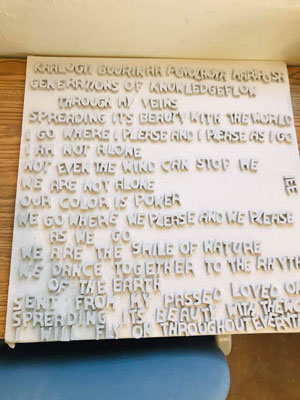 GENERATIONS OF KNOWLEDGE FLOW
THROUGH MY VEINS
SPREADING ITS BEAUTY WITH THE WORLD
I GO WHERE I PLEASE AND I PLEASE AS I GO
I AM NOT ALONE
NOT EVEN THE WIND CAN STOP ME
WE ARE NOT ALONE
OUR COLOR IS POWER
WE GO WHERE WE PLEASE AND WE PLEASE
AS WE GO
WE ARE THE SMILE OF NATURE
WE DANCE TOGETHER TO THE RHYTH
OF THE EARTH
SENT FROM MY PASSED LOVED ON
SPREADING ITS BEAUTY WITH THE
I WILL FLY ON THROUGHOUT